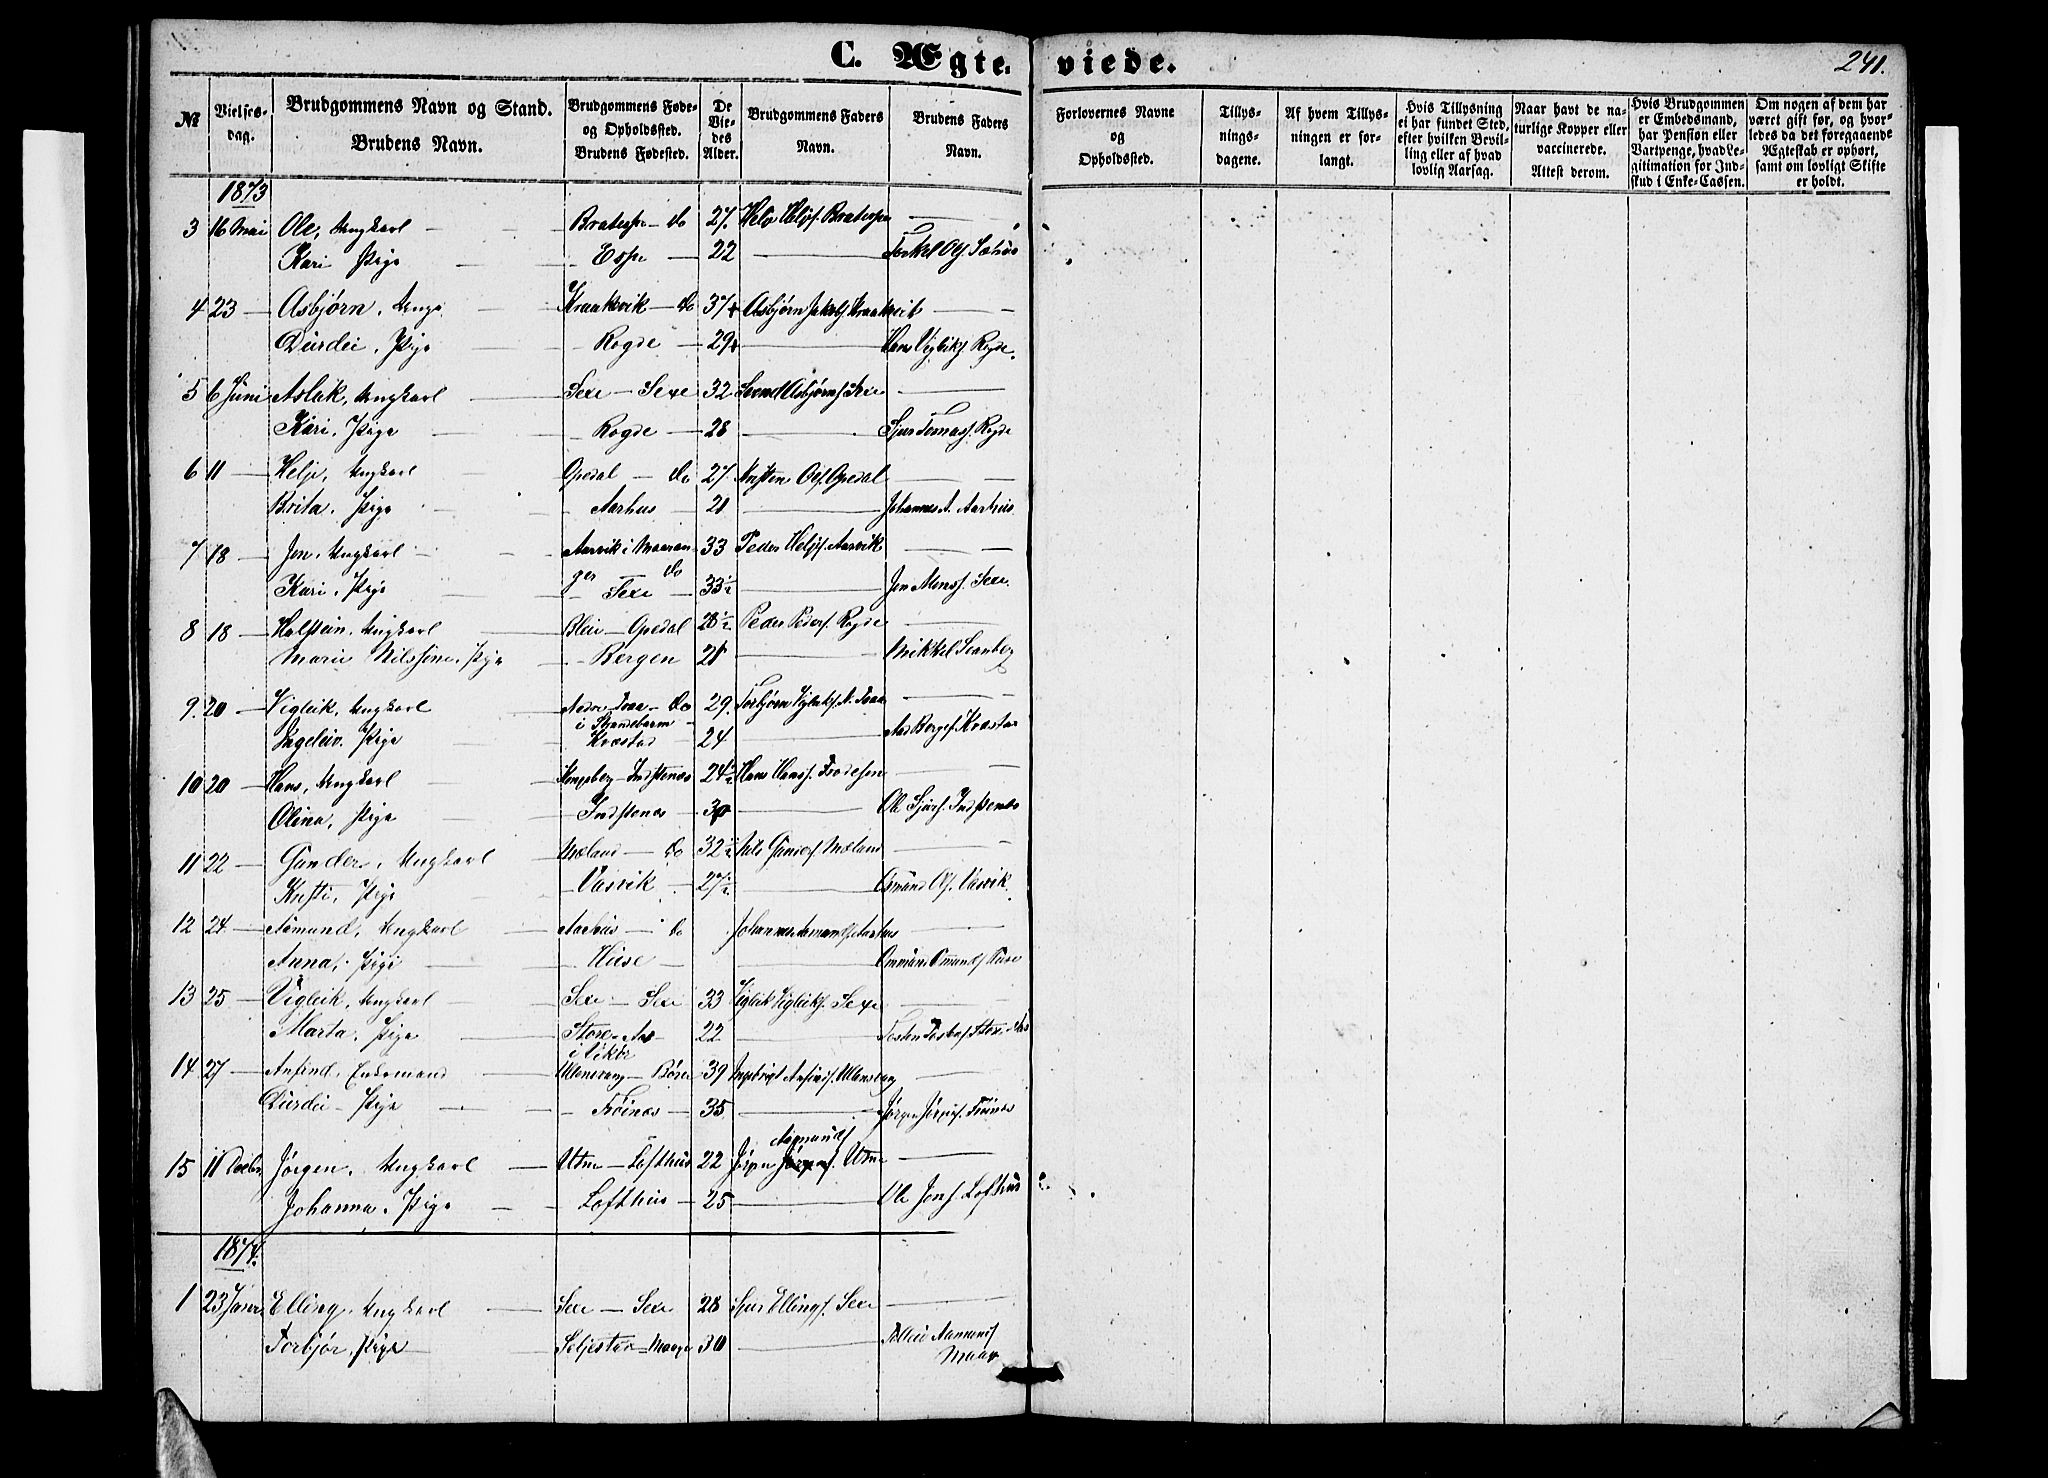 C. Ægte viede.
241.
№
Vielses-
dag.
Brudgommens Navn og Stand.
Brudens Navn.
Brudgommens Føde-
og Opholdssted.
Brudens Fødested.
De
Vie-
des
Alder.
Brudgommens Faders
Navn.
Brudens Faders
Navn.
Forlovernes Navne
og
Opholdssted.
Tillys-
nings-
dagene.
Af hvem Tillys-
ningen er for-
langt.
Hvis Tillysning
ei har fundet Sted,
efter hvilken Bevil-
ling eller af hvad
lovlig Aarsag.
Naar havt de na-
turlige Kopper eller
vaccinerede.
Attest derom.
Hvis Brudgommen
er Embedsmand,
har Pension eller
Vartpenge, hvad Le-
gitimation for Ind-
skud i Enke-Cassen.
Om nogen af dem har
været gift før, og hvor-
ledes da det foregaaende
Ægteskab er ophørt,
samt om lovligt Skifte
er holdt.
1873
3 16 Mai Ole, Ungkarl — do 27
Kari Pige — Espe — 22 —
4 23 — Asbjørn, Kraakevik — do 37 Asbjørn Kraakevik —
Durdei, Pige — Rogde — 29 — Hans Vigleiks. Rogde.
5 6 Juni Aslak, Ungkarl — Sexe — Sexe 32 Asbjørns. Sexe —
Kari, Pige — Rogde — 28 — Sjur Tomass. Rogde
6 11 — Helje, Ungkarl — Opedal — do 27 Ols. Opedal —
Brita, Pige — Aarhus — 21 — Johannes A. Aarhus
7 18 — Jon, Ungkarl — Aarvik i Mauran- 33 Peder Heljes. Aarvik —
ger do
Kari, Pige — Sexe — 33½ — Jon Monss. Sexe
8 18 — Halstein, Ungkarl — Bleie — Opedal 28½ Peder Peders. Rogde —
Marie Nilssine, Pige — Bergen 21 — Mikkel
9. 20 — Vigleik, Ungkarl — Nedre Traa — do 29. Torbjørn Vigleiks. N. Traa —
i Strandebarm —
Ingeleiv. Pige — Kvæstad 24 —
10 20 — Hans, Ungkarl — Kongsberg — Indstenæs 24½ Hans Hanss. —
Olina, Pige — Indstenæs — — Ole Sjurs. Indstenæs
11 22 — Gunder, Ungkarl — Mæland — do 32½ Nils Gunders. Mæland —
Kristi, Pige — Vasvik — 27½ — Osmund Ols. Vasvik.
12 24 — Aamund, Ungkarl — Aarhus — do Johannes Aamunds. Aarhus —
Anna, Pige — Huse — —
13 25 — Vigleik, Ungkarl — Sexe — Sexe 33 Vigleik Vigleiks. Sexe —
Marta, Pige — Store-Aas — 22 —
i Vikør
14 27 — Anfind, Enkemand — Ullensvang — Børve 39 Ingebrigt Anfinds. Ullensvang —
Durdei — Pige — Frøinæs — 35 — Jørgen Jørgens. Frøinæs
Aamunds
15 11 Decbr. Jørgen, Ungkarl — Utne — Lofthus 22 Jørgen Utne —
Johanna, Pige — Lofthus — 25 — Ole Jons. Lofthus
1874.
1 23 Januar Elling, Ungkarl — Sexe — Sexe 28 Sjur Ellings. Sexe —
Torbjør, Pige — Seljestad — Maage 30 — Aamunds.